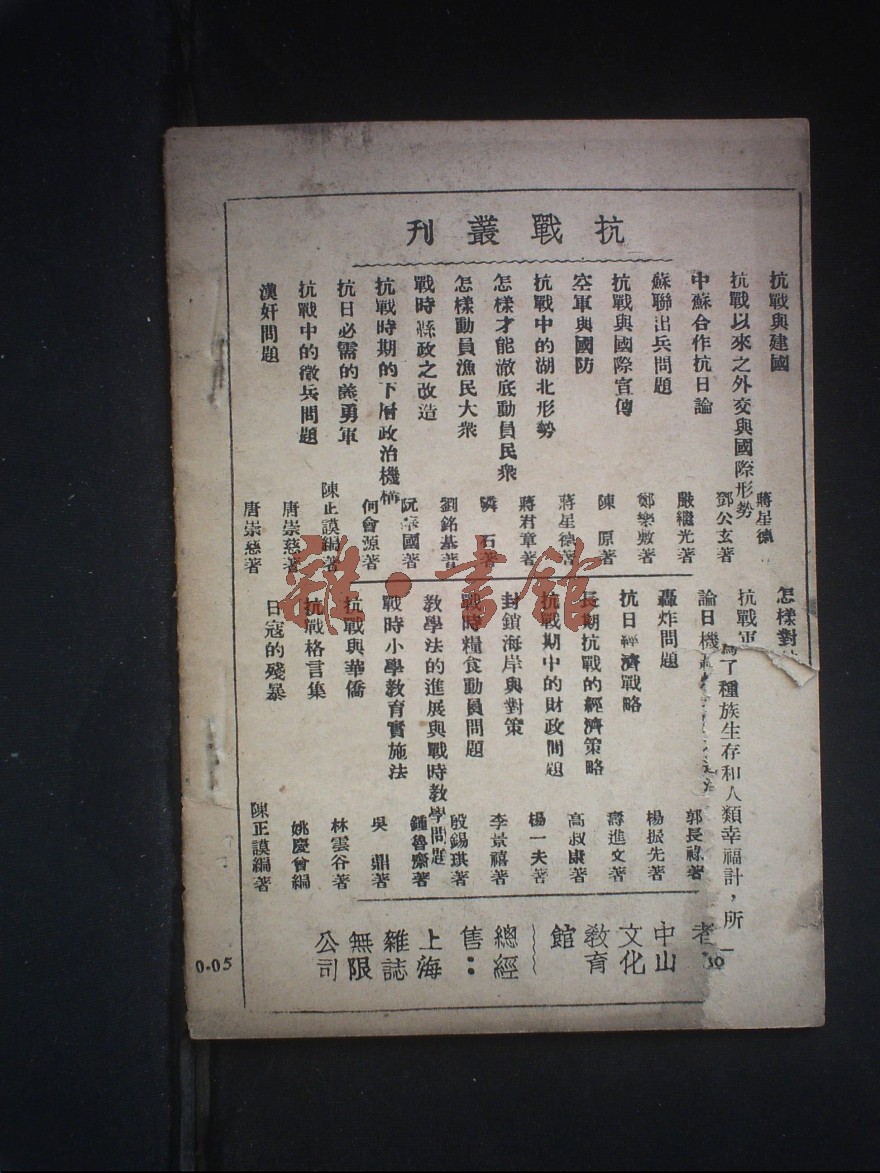 抗戰叢刊
抗戰與建國
蔣星德
抗戰以來之外交與國際形勢
鄧公玄著
中蘇合作抗日論
嚴繼光著
蘇聯出兵問題
鄭樂敷著
抗戰與國際宣傳
陳原著
空軍與國防
蔣星德著
抗戰中的湖北形勢
蔣君章著
怎樣才能澈底動員民衆
石著
怎樣動員漁民大衆
劉銘基著
戰時縣政之改造
國著
抗戰時期的下層政治機構
何會源著
抗日必需的義勇軍
陳正謨編著
抗戰中的徵兵問題
唐崇慈著
漢奸問題
唐崇慈著
怎樣對
抗戰軍
論日機
爲了種族生存和人類幸福計，所
郭長祿著
轟炸問題
楊振先著
抗日經濟戰略
壽進文著
長期抗戰的經濟策略
高叔康著
抗戰期中的財政問題
楊一夫著
封鎖海岸與對策
李景禧著
戰時糧食動員問題
殷錫琪著
教學法的進展與戰時教學問題
鍾魯齋著
戰時小學教育實施法
吳鼎著
抗戰與華僑
林雲谷著
抗戰格言集
姚慶曾編
日寇的殘暴
陳正謨編著
者
中山
文化
教育
館
總經
售：
上海
雜誌
無限
公司
0.05
雜·書館